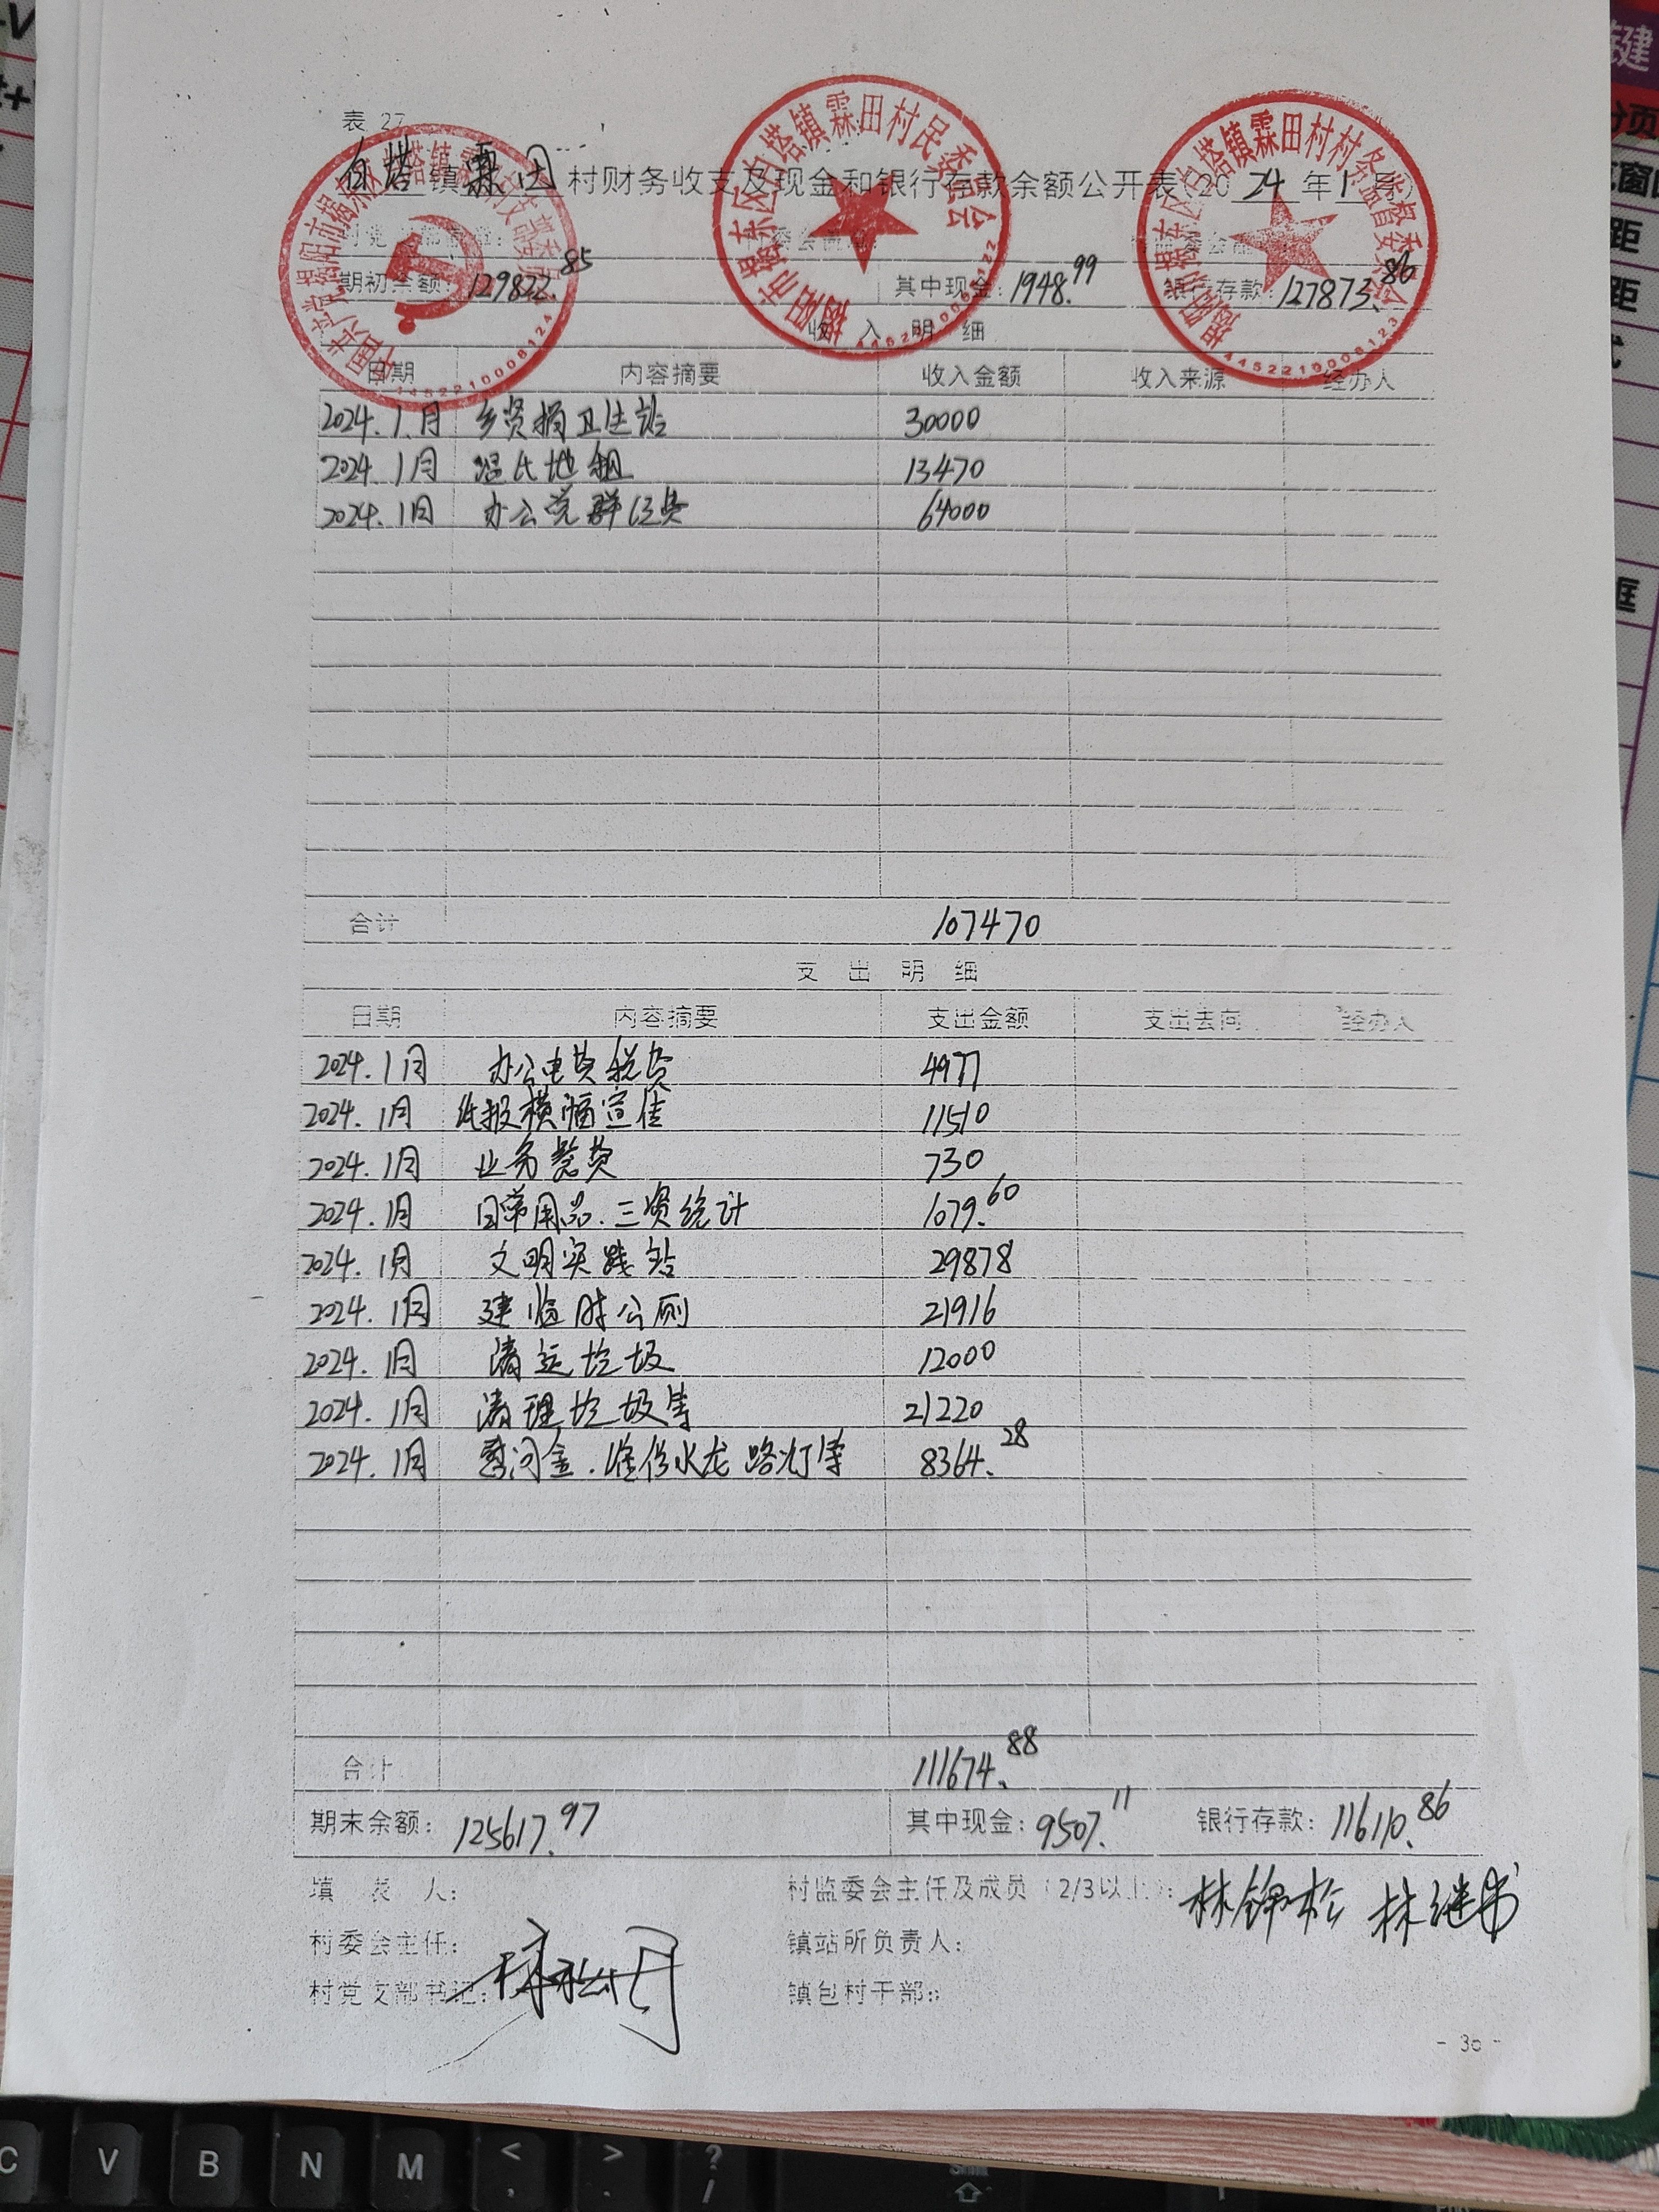 表 27
白塔 镇 霖田 村财务收支及现金和银行存款余额公开表(20 24 年 1 月)
期初余额: 129822.85 其中现金: 1948.99 银行存款: 127873.86
收 入 明 细
日期 内容摘要 收入金额 收入来源 经办人
2024.1.月 乡贤捐卫生站 30000
2024.1月 地租 13470
2024.1月 办公党群经费 64000
合计 107470
支 出 明 细
日期 内容摘要 支出金额 支出去向 经办人
2024.1月 办公电费税费 4977
2024.1月 横幅宣传 11510
2024.1月 业务餐费 730
2024.1月 日常用品.三资统计 1079.60
2024.1月 文明实践站 29878
2024.1月 建临时公厕 21916
2024.1月 清运垃圾 12000
2024.1月 清理垃圾等 21220
2024.1月 慰问金.维修水龙路灯等 8364.28
合计 111674.88
期末余额: 125617.97 其中现金: 9507.11 银行存款: 116110.86
填 表 人: 村监委会主任及成员(2/3以上): 林锦松 林继
村委会主任: 镇站所负责人:
村党支部书记: 镇包村干部:
- 30 -
中国共产党揭阳市揭东区白塔镇霖田村支部委员会
4452210008124
揭阳市揭东区白塔镇霖田村民委员会
4452210008122
揭阳市揭东区白塔镇霖田村村务监督委员会
4452210008123
C V B N M < , > . ? /